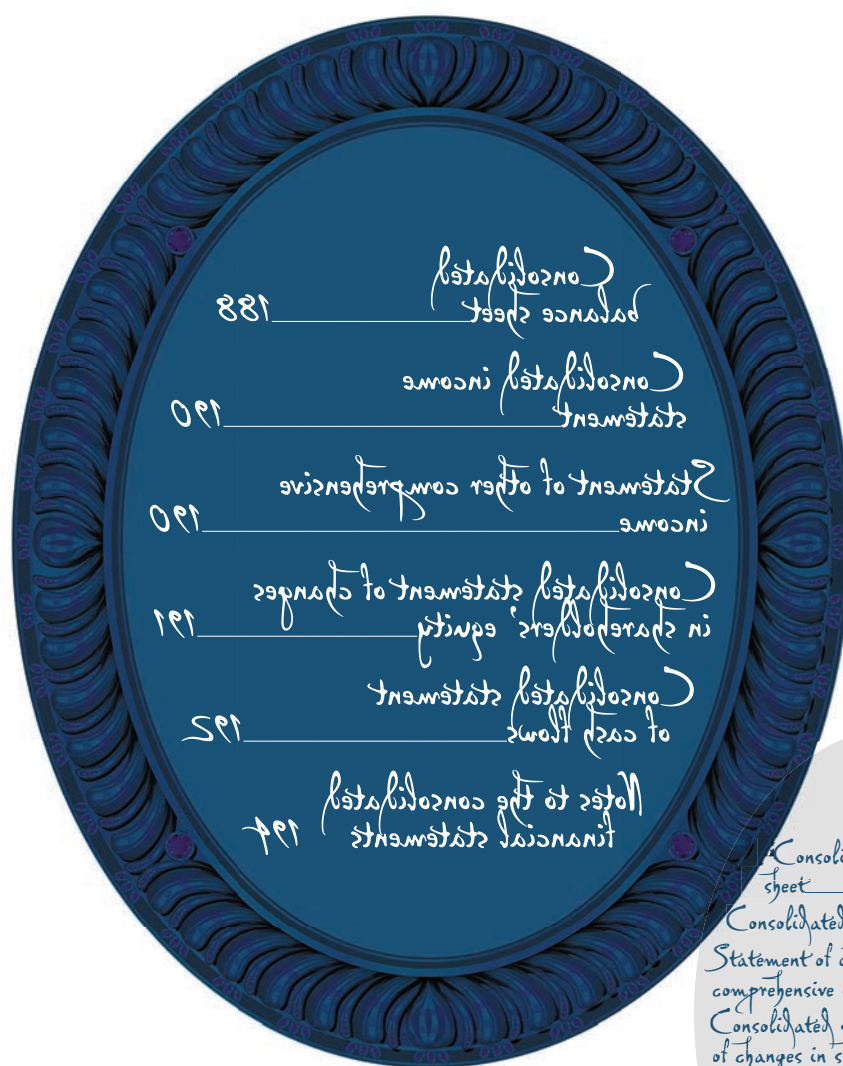 Consolidated
balance sheet 188
Consolidated income
statement 190
Statement of other comprehensive
income 190
Consolidated statement of changes
in shareholders' equity 191
Consolidated statement
of cash flows 192
Notes to the consolidated
financial statements 194
sheet
Consolidated
Statement of
comprehensive
Consolidated
of changes in